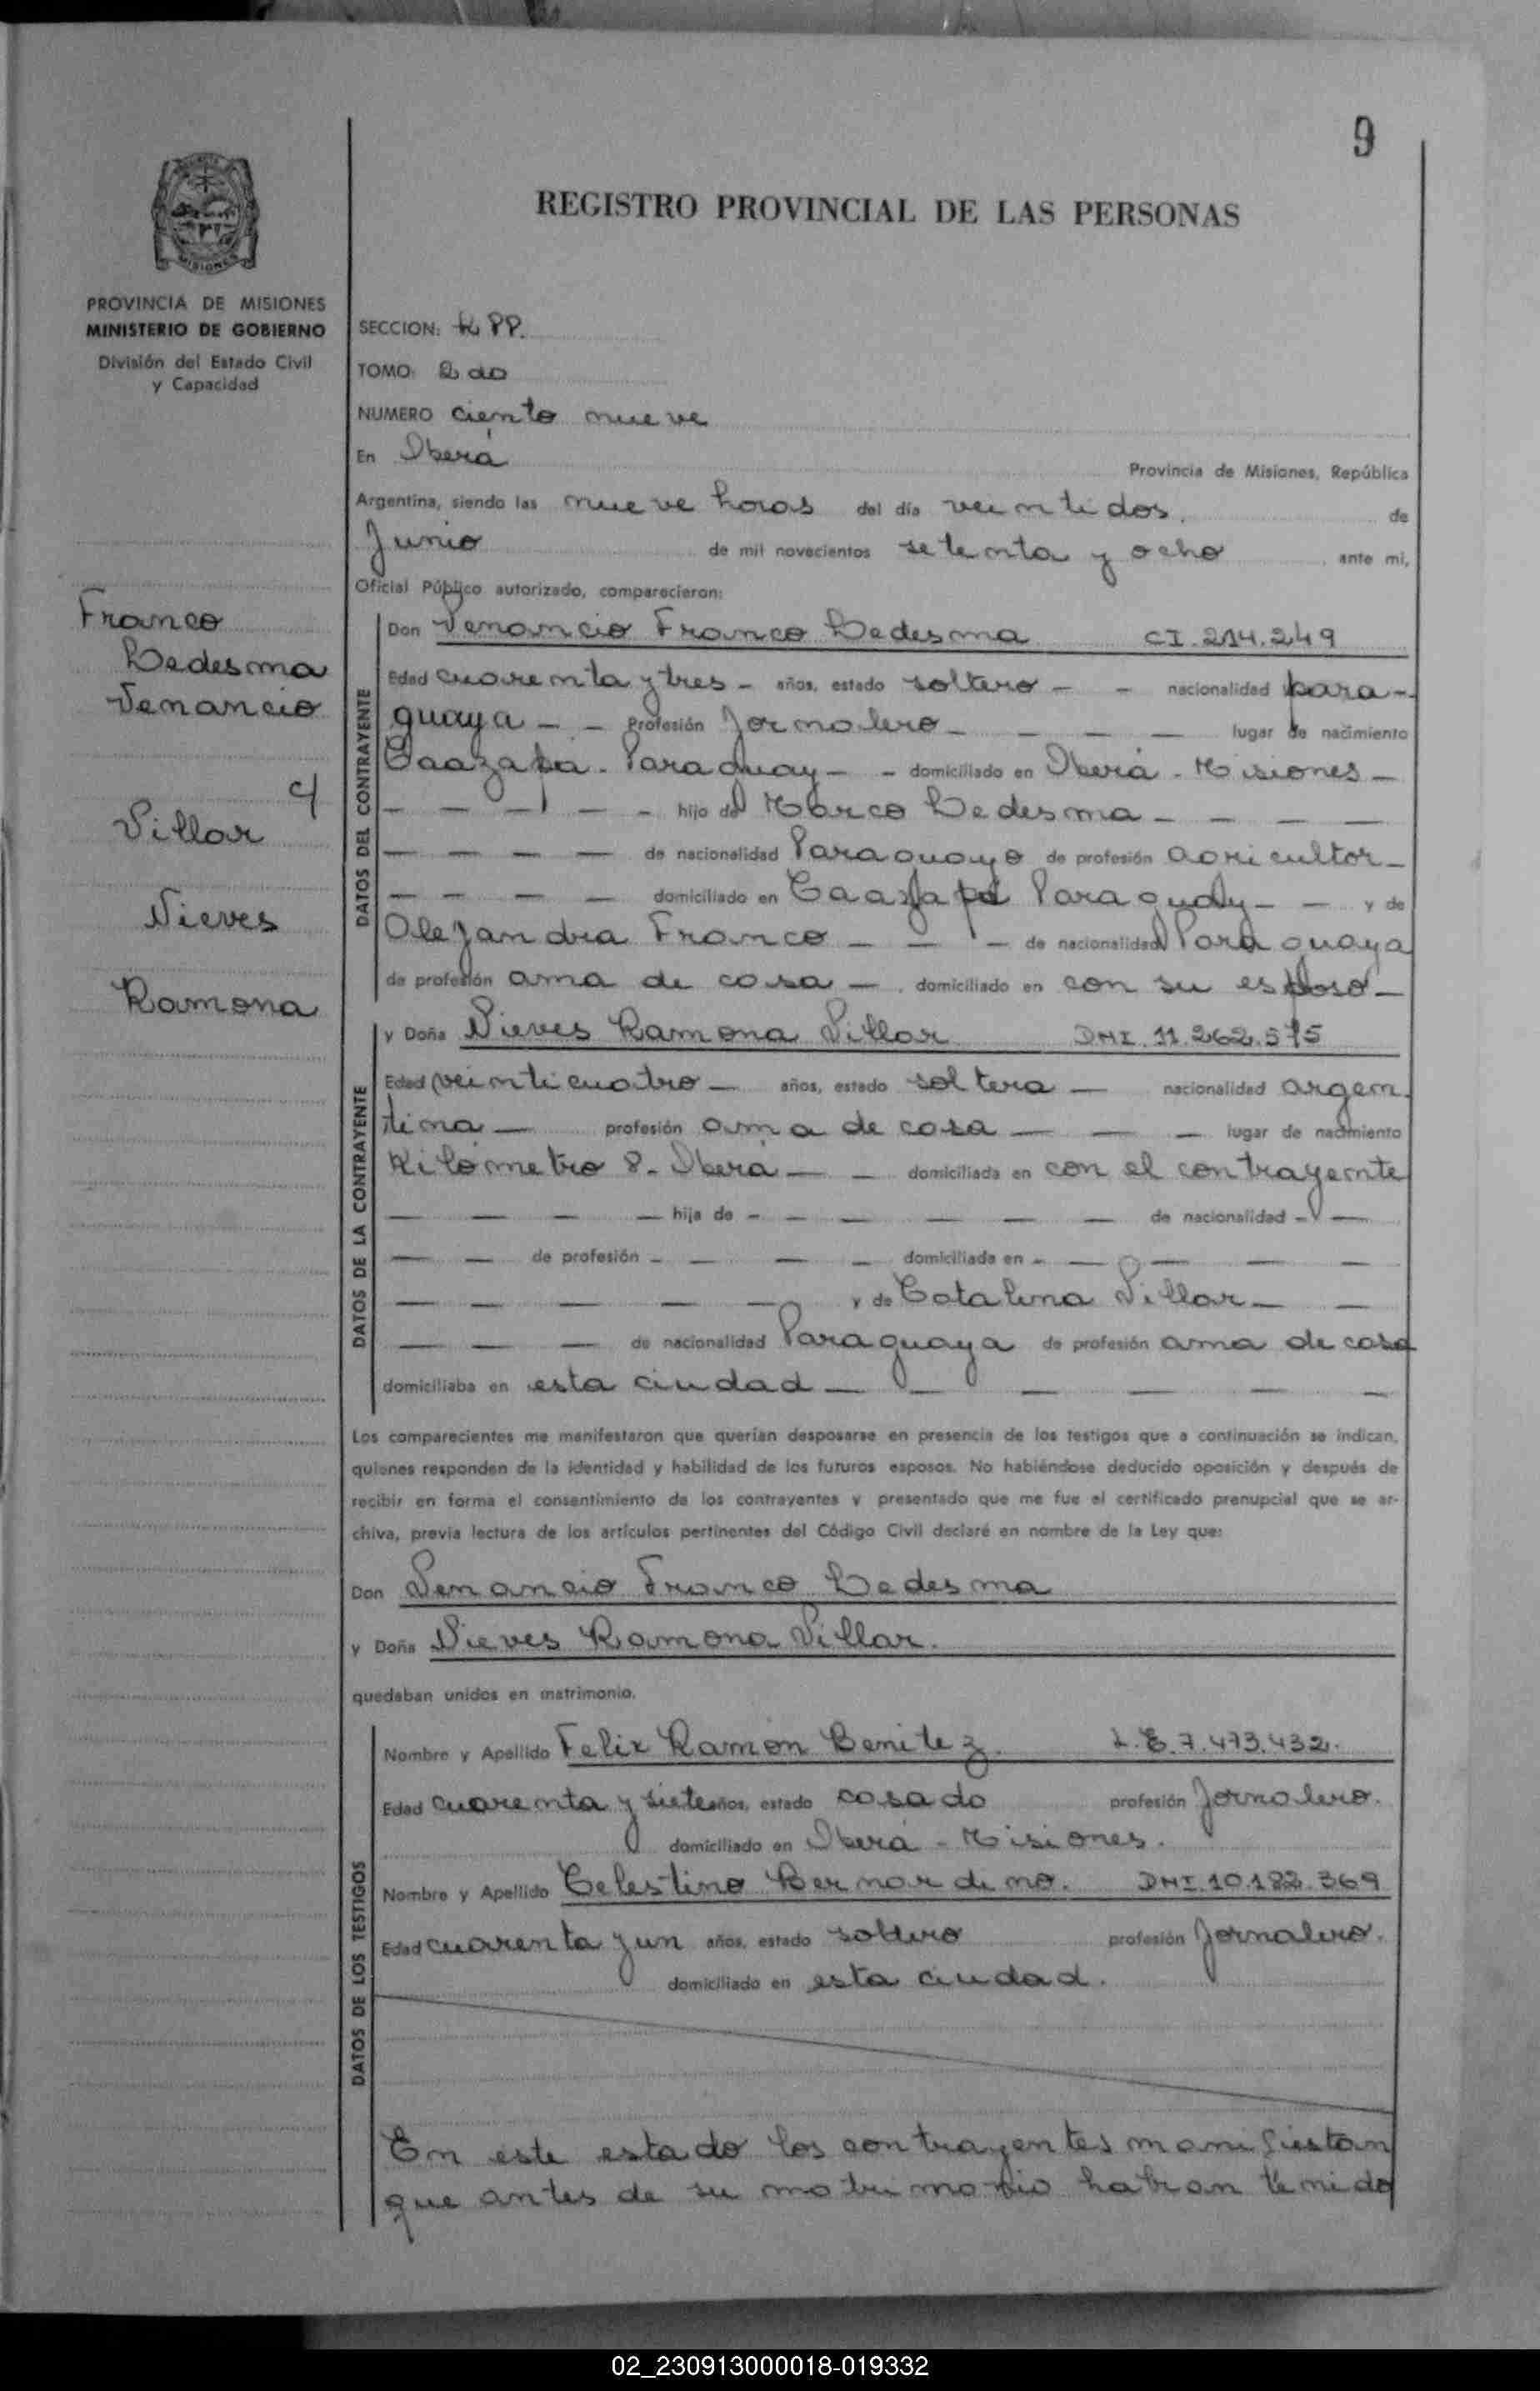 9
REGISTRO PROVINCIAL DE LAS PERSONAS
MISIONES
PROVINCIA DE MISIONES
MINISTERIO DE GOBIERNO
División del Estado Civil
y Capacidad
SECCION: R.PP.
TOMO: 2do
NUMERO ciento nueve
En Oberá Provincia de Misiones, República
Argentina, siendo las nueve horas del día veintidos. de
Junio de mil novecientos setenta y ocho ante mi,
Oficial Público autorizado, comparecieron:
Franco
Ledesma
Venancio
c/
Villar
Nieves
Ramona
DATOS DEL CONTRAYENTE
Don Venancio Franco Ledesma CI. 214.249
Edad cuarenta y tres - años, estado soltero - - nacionalidad para-
guaya - - Profesión Jornalero - - - - lugar de nacimiento
Caazapa - Paraguay - - domiciliado en Oberá - Misiones -
- - - - - hijo de Marco Ledesma - - - -
- - - - de nacionalidad Paraguayo de profesión agricultor -
- - - - domiciliado en Caazapá Paraguay - - y de
Alejandra Franco - - - de nacionalidad Paraguaya
de profesión ama de casa - domiciliado en con su esposo -
DATOS DE LA CONTRAYENTE
y Doña Nieves Ramona Villar DNI. 11.262.575
Edad veinticuatro - años, estado soltera - nacionalidad argen-
tina - profesión ama de casa - - - lugar de nacimiento
Kilómetro 8 - Oberá - - domiciliada en con el contrayente
- - - - hija de - - - - - - de nacionalidad - -
- - de profesión - - - - domiciliada en - - - - -
- - - - - y de Catalina Villar - -
- - - de nacionalidad Paraguaya de profesión ama de casa
domiciliaba en esta ciudad - - - - - -
Los comparecientes me manifestaron que querían desposarse en presencia de los testigos que a continuación se indican,
quienes responden de la identidad y habilidad de los futuros esposos. No habiéndose deducido oposición y después de
recibir en forma el consentimiento de los contrayentes y presentado que me fue el certificado prenupcial que se ar-
chiva, previa lectura de los artículos pertinentes del Código Civil declaré en nombre de la Ley que:
Don Venancio Franco Ledesma
y Doña Nieves Ramona Villar.
quedaban unidos en matrimonio.
DATOS DE LOS TESTIGOS
Nombre y Apellido Felix Ramón Benitez. L.E. 7.473.432.
Edad cuarenta y siete años, estado casado profesión Jornalero.
domiciliado en Oberá - Misiones.
Nombre y Apellido Celestino Bernardino. DNI. 10.182.369
Edad cuarenta y un años, estado soltero profesión Jornalero.
domiciliado en esta ciudad.
En este estado los contrayentes manifiestan
que antes de su matrimonio habian tenido
02_230913000018-019332